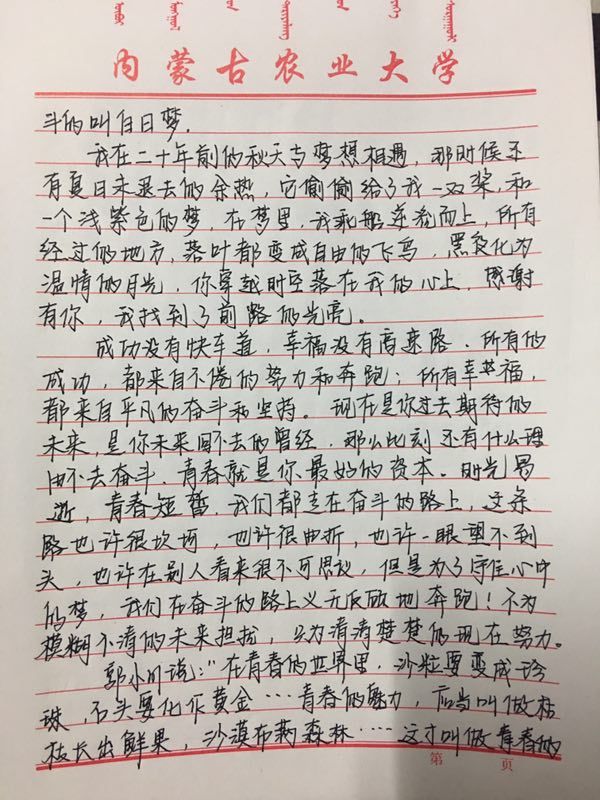 内蒙古农业大学
斗的叫白日梦。
我在二十年前的秋天与梦想相遇，那时候还
有夏日未退去的余热，它偷偷给了我一双桨，和
一个浅紫色的梦，在梦里，我乘船逆流而上，所有
经过的地方，落叶都变成自由的飞鸟，黑夜化为
温情的月光，你穿越时空落在我的心上，感谢
有你，我找到了前路的光亮。
成功没有快车道，幸福没有高速路．所有的
成功，都来自不倦的努力和奔跑；所有幸福，
都来自平凡的奋斗和坚持。现在是你过去期待的
未来，是你未来回不去的曾经，那么此刻还有什么理
由不去奋斗．青春就是你最好的资本．时光易
逝，青春短暂．我们都走在奋斗的路上，这条
路也许很坎坷，也许很曲折，也许一眼望不到
头，也许在别人看来很不可思议，但是为了守住心中
的梦，我们在奋斗的路上义无反顾地奔跑！不为
模糊不清的未来担扰，只为清清楚楚的现在努力。
郭小川说：“在青春的世界里，沙粒要变成珍
珠，石头要化作黄金……青春的魅力，应当叫做枯
枝长出鲜果，沙漠布满森林……这才叫做青春的
第 页